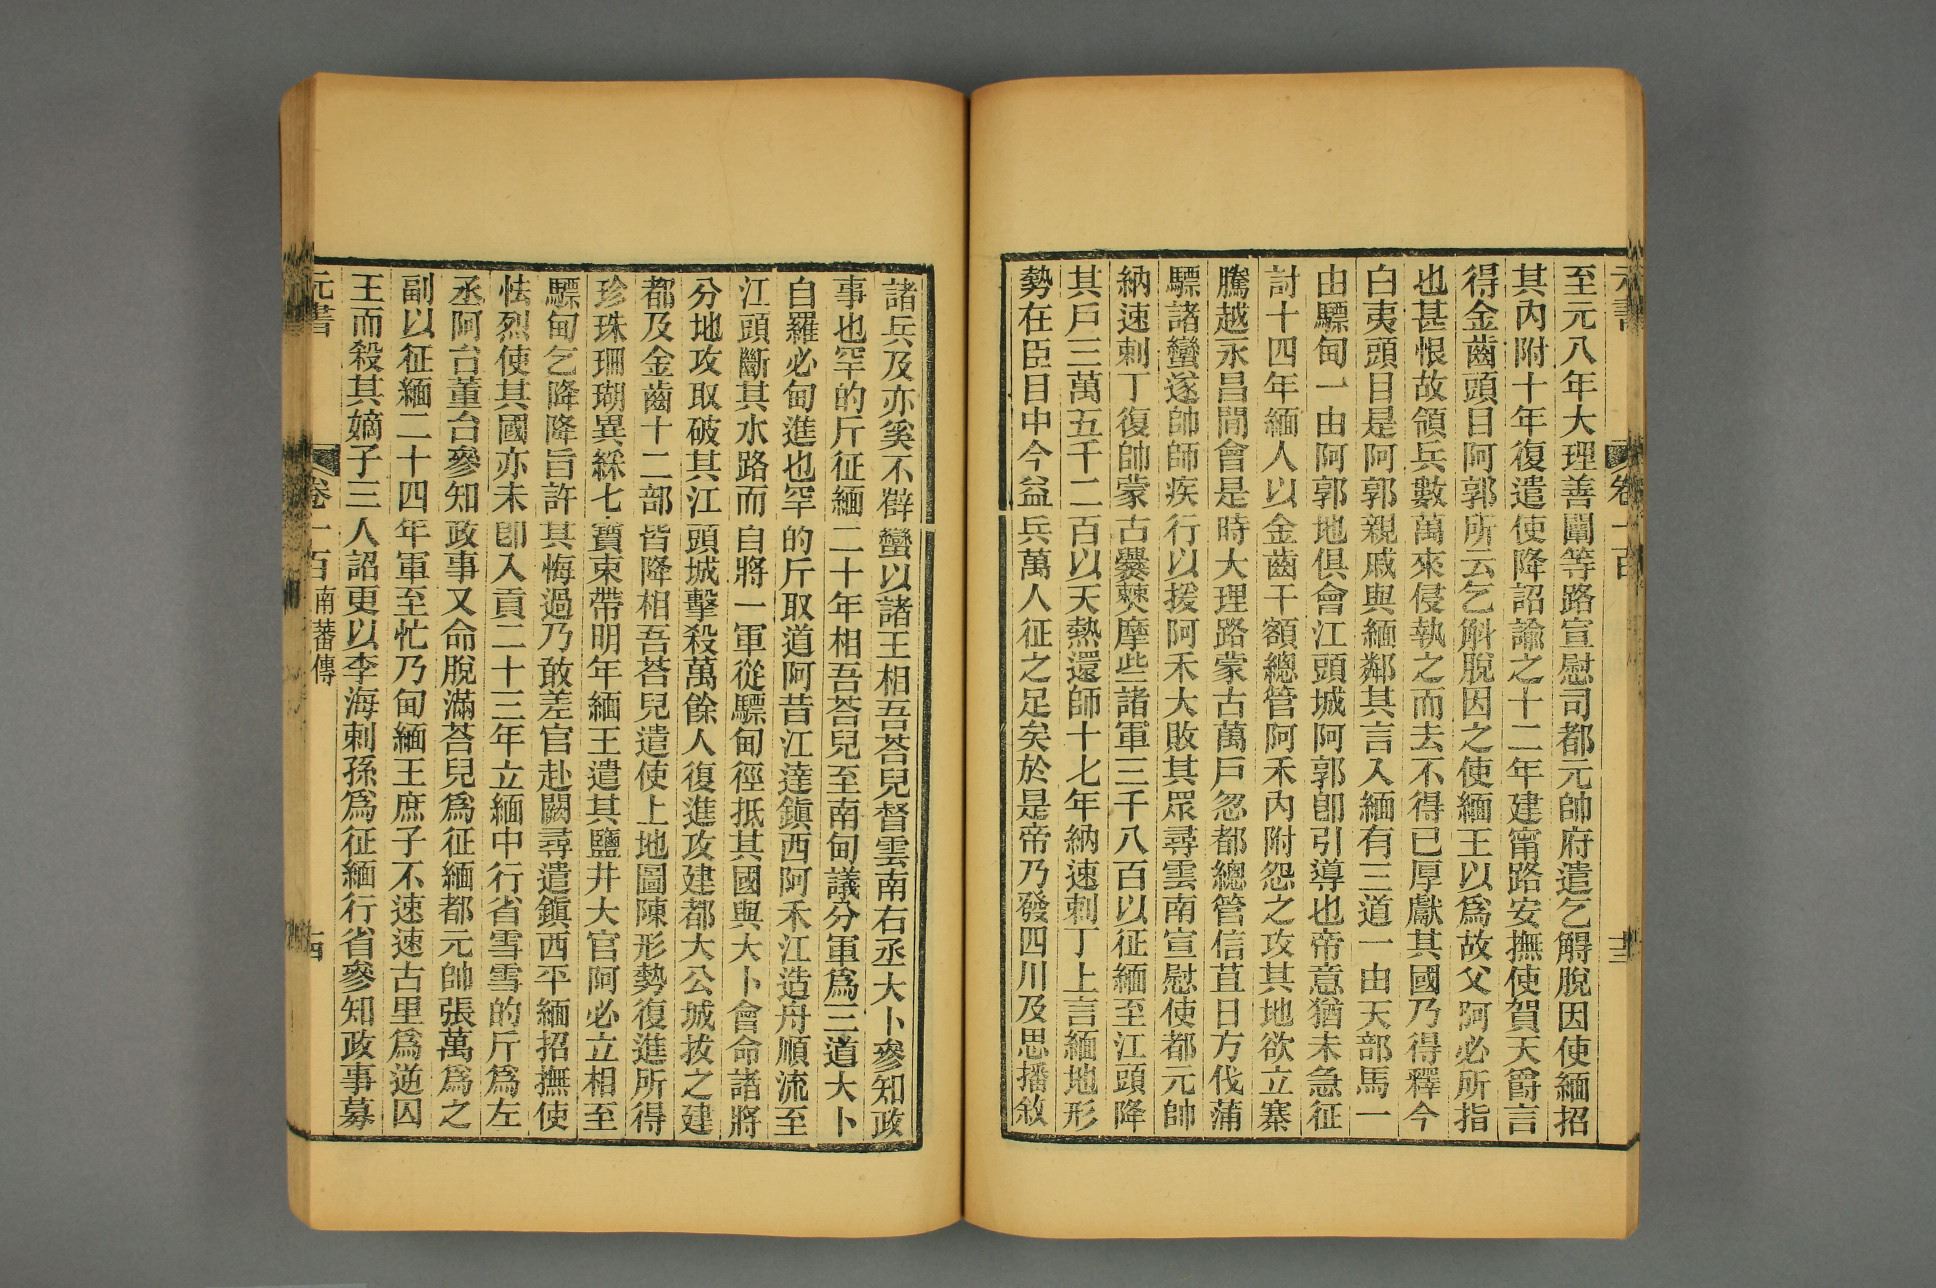 至元八年大理善闡等路宣慰司都元帥府遣乞䚟脫因使緬招
其內附十年復遣使降詔諭之十二年建甯路安撫使賀天爵言
得金齒頭目阿郭所云乞斛脫因之使緬王以爲故父阿必所指
也甚恨故領兵數萬來侵執之而去不得已厚獻其國乃得釋今
白夷頭目是阿郭親戚與緬鄰其言入緬有三道一由天部馬一
由驃甸一由阿郭地俱會江頭城阿郭卽引導也帝意猶未急征
討十四年緬人以金齒干額總管阿禾內附怨之攻其地欲立寨
騰越永昌間會是時大理路蒙古萬戶忽都總管信苴日方伐蒲
驃諸蠻遂帥師疾行以援阿禾大敗其眾尋雲南宣慰使都元帥
納速剌丁復帥蒙古爨僰摩些諸軍三千八百以征緬至江頭降
其戶三萬五千二百以天熱還師十七年納速剌丁上言緬地形
勢在臣目中今益兵萬人征之足矣於是帝乃發四川及思播敘
諸兵及亦奚不辥蠻以諸王相吾荅兒督雲南右丞大卜參知政
事也罕的斤征緬二十年相吾荅兒至南甸議分軍爲三道大卜
自羅必甸進也罕的斤取道阿昔江達鎭西阿禾江造舟順流至
江頭斷其水路而自將一軍從驃甸徑抵其國與大卜會命諸將
分地攻取破其江頭城擊殺萬餘人復進攻建都大公城拔之建
都及金齒十二部皆降相吾荅兒遣使上地圖陳形勢復進所得
珍珠珊瑚異綵七寶束帶明年緬王遣其鹽井大官阿必立相至
驃甸乞降降旨許其悔過乃敢差官赴闕尋遣鎭西平緬招撫使
怯烈使其國亦未卽入貢二十三年立緬中行省雪雪的斤爲左
丞阿台董台參知政事又命脫滿荅兒爲征緬都元帥張萬爲之
副以征緬二十四年軍至忙乃甸緬王庶子不速速古里爲逆囚
王而殺其嫡子三人詔更以李海剌孫爲征緬行省參知政事募
元書
卷一百
南蕃傳
十四